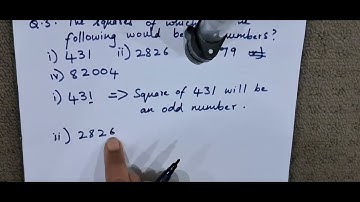 Q.3. The squares of which
following would be numbers?
i) 431 ii) 2826 79
iv) 82004
i) 431 => Square of 431 will be
an odd number.
ii) 2826